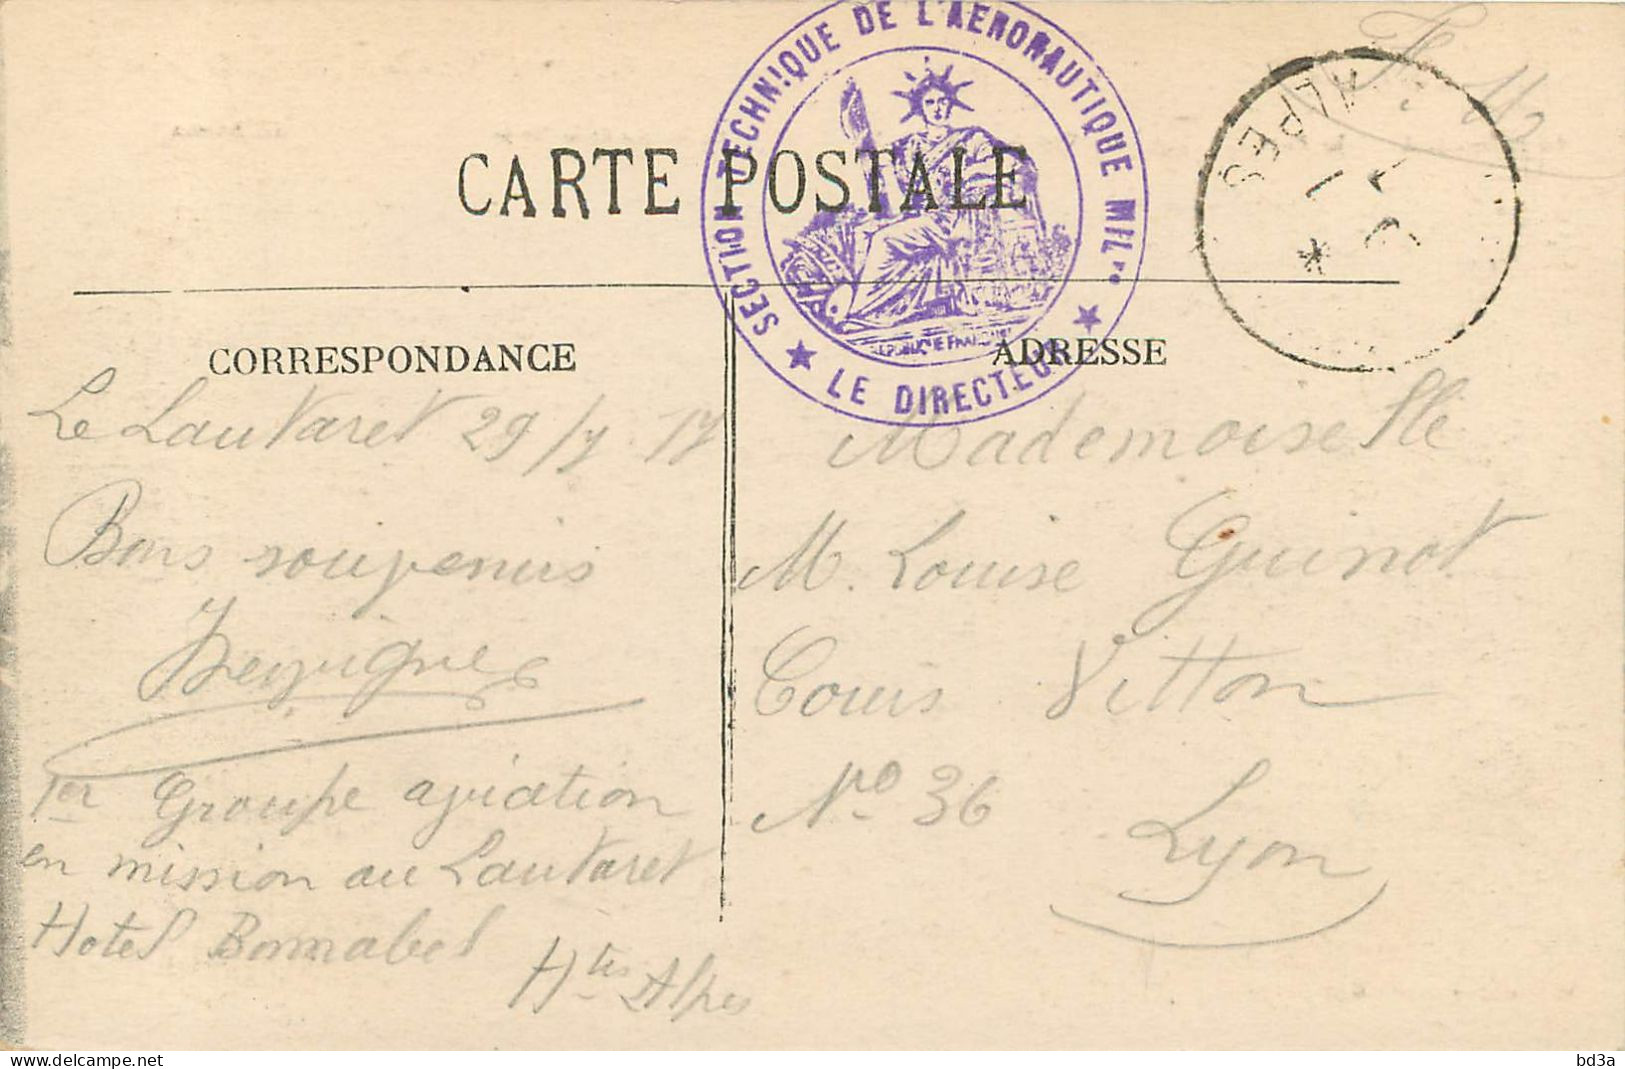 F. M.
CARTE POSTALE
SECTION TECHNIQUE DE L'AERONAUTIQUE MILre
LE DIRECTEUR
REPUBLIQUE FRANCAISE
ALPES
CORRESPONDANCE
Le Lautaret 29/7 17
Bons souvenirs
1er Groupe aviation
en mission au Lautaret
Hotel Bonnabel
Htes Alpes
ADRESSE
Mademoiselle
M. Louise Guinot
Cours Vitton
No 36
Lyon
delcampe.net
bd3a